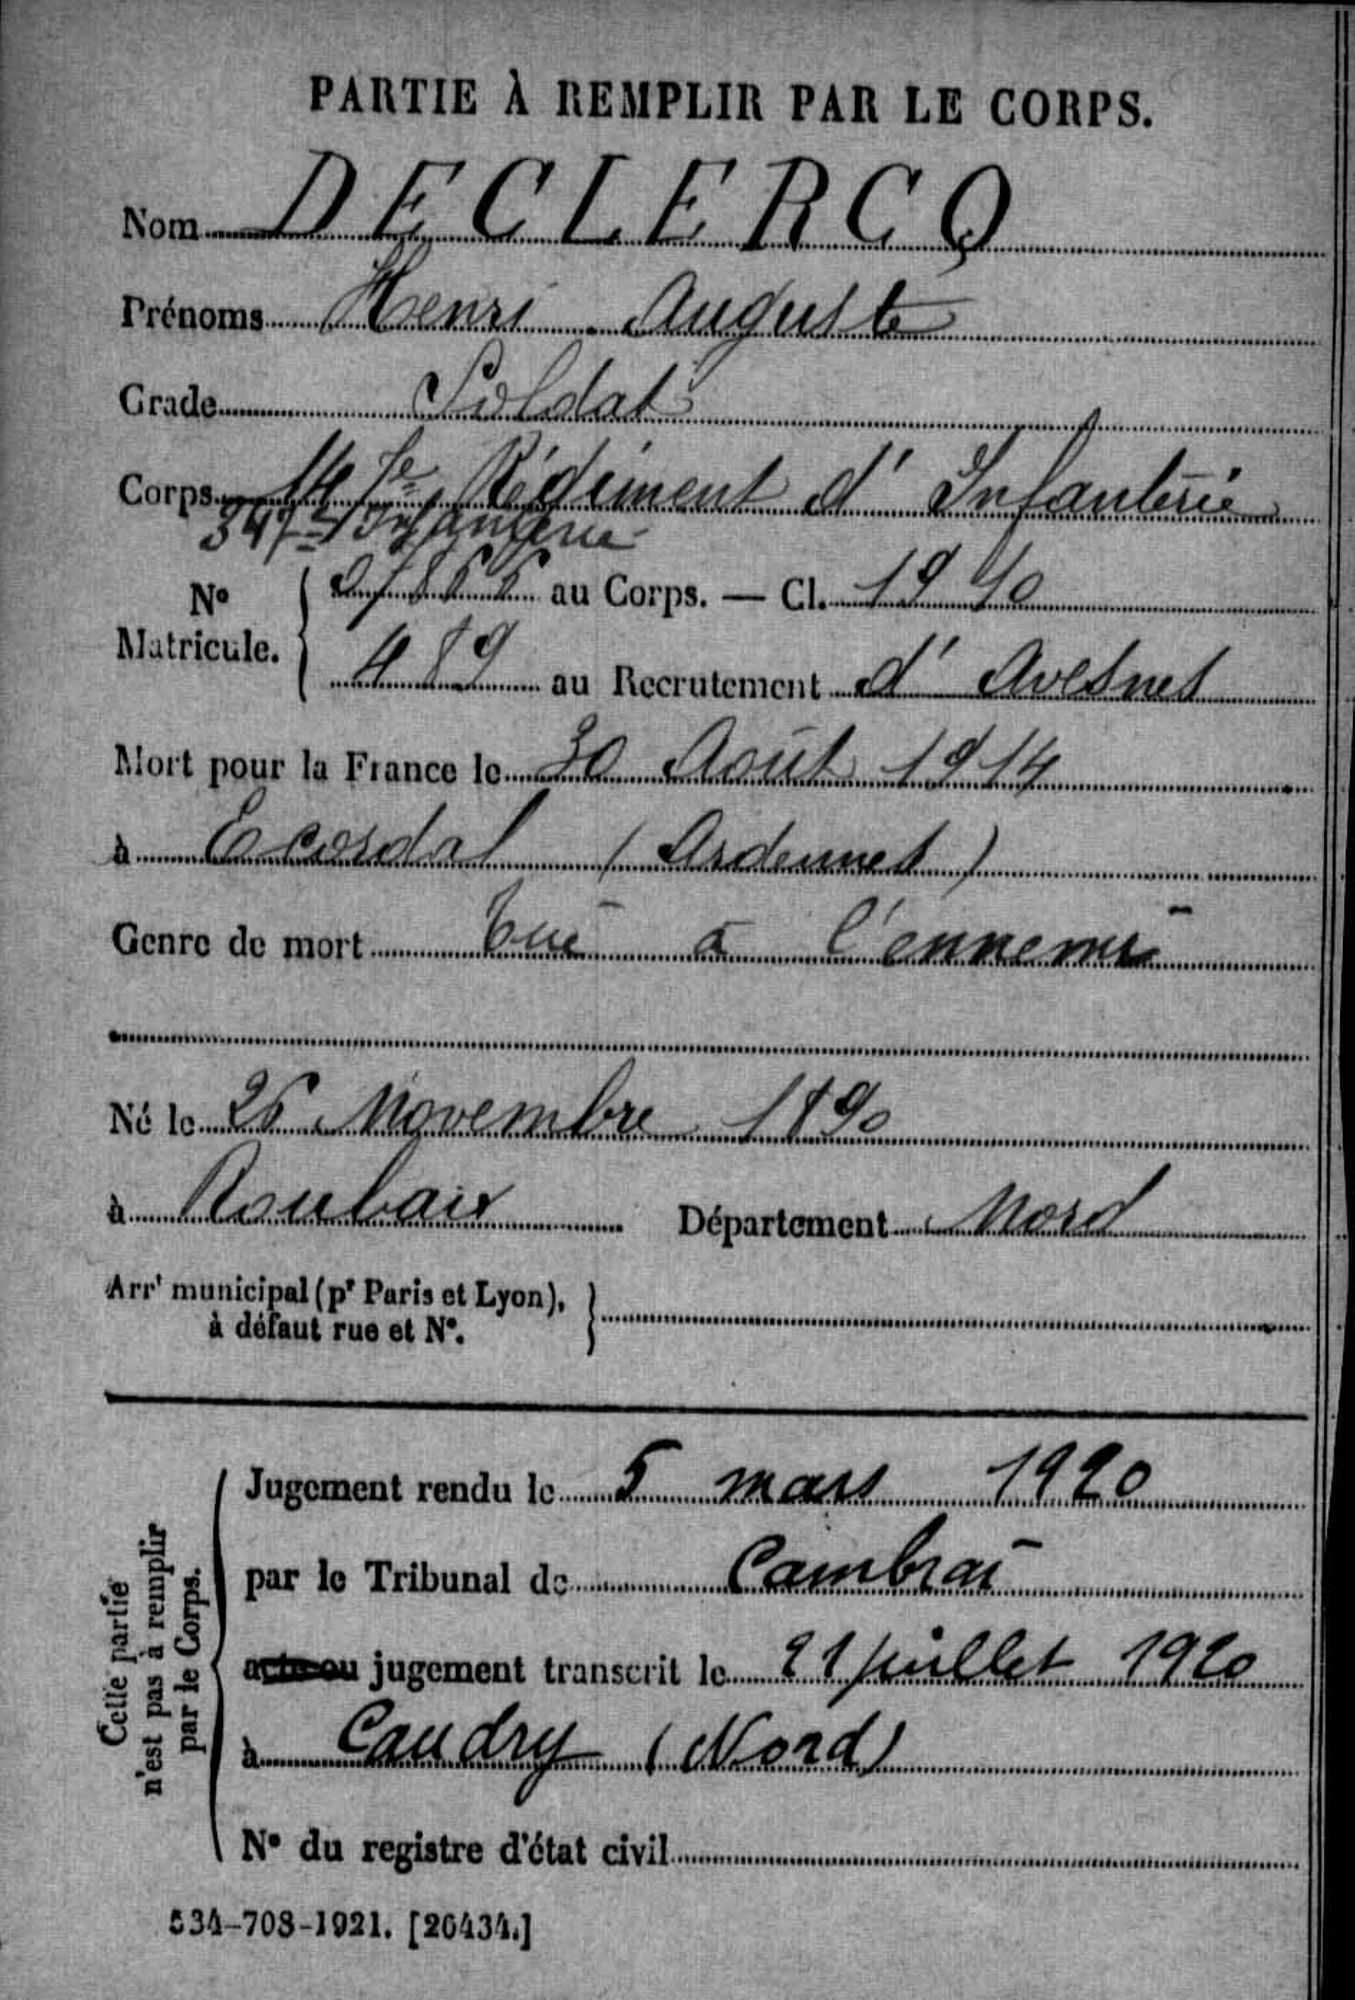 PARTIE À REMPLIR PAR LE CORPS.
Nom DECLERCQ
Prénoms Henri Auguste
Grade Soldat
Corps Régiment d'Infanterie
347e d'Infanterie
No Matricule. au Corps. — Cl. 1910
489 au Recrutement d'Avesnes
Mort pour la France le 30 Août 1914
à Ecordal (Ardennes)
Genre de mort Tué à l'ennemi
Né le 26 Novembre 1890
à Roubaix Département Nord
Arrt municipal (pr Paris et Lyon),
à défaut rue et No.
Cette partie
n'est pas à remplir
par le Corps.
Jugement rendu le 5 mars 1920
par le Tribunal de Cambrai
acte ou jugement transcrit le 21 juillet 1920
à Caudry (Nord)
No du registre d'état civil
534-708-1921. [26434.]